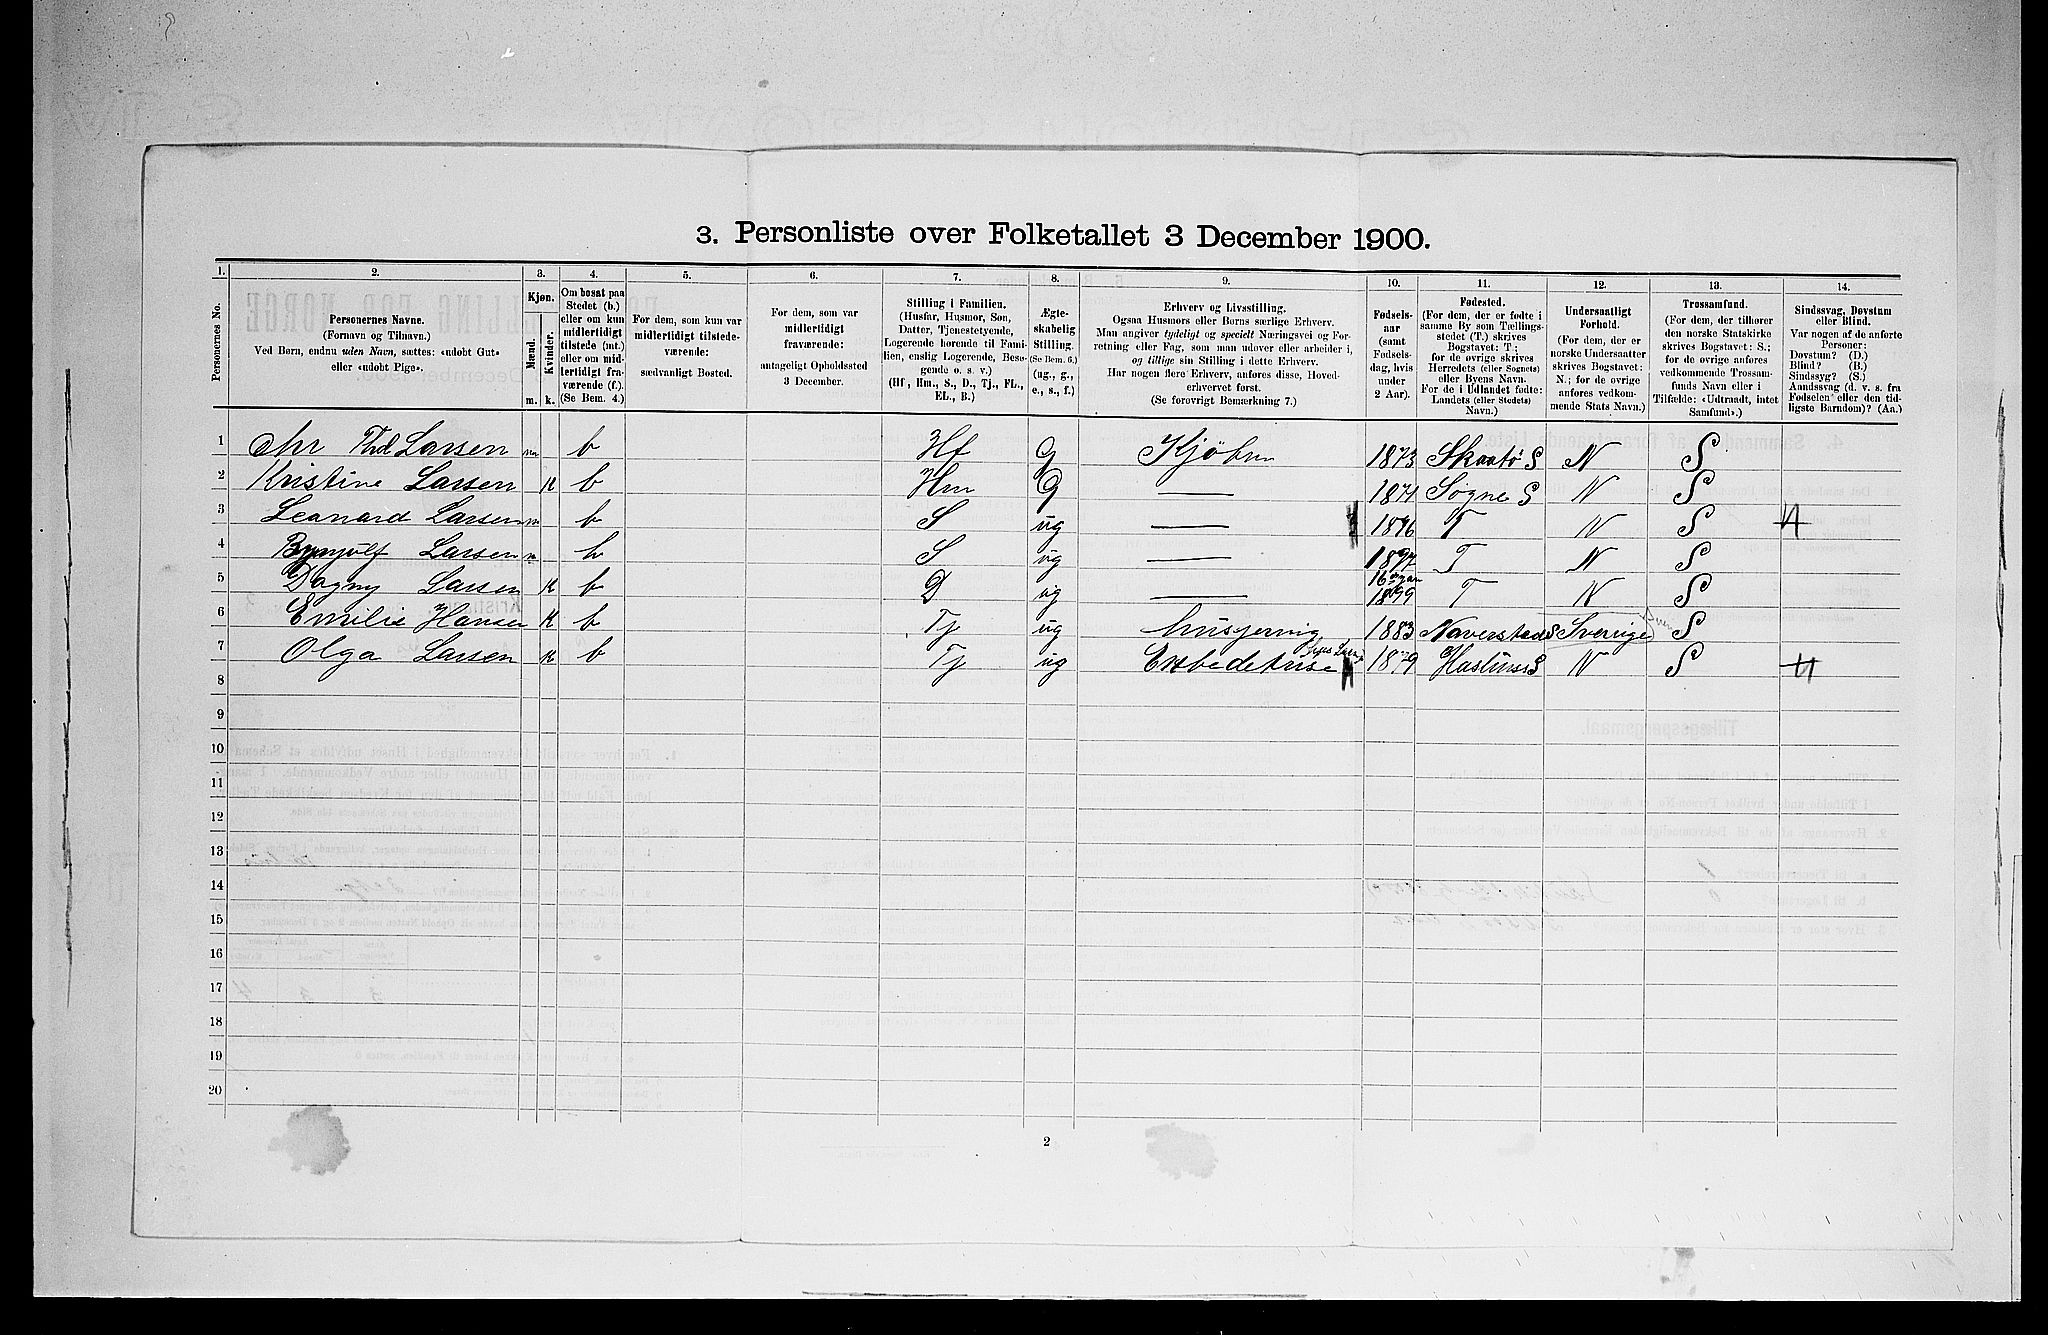 3. Personliste over Folketallet 3 December 1900.
1. 2. 3. 4. 5. 6. 7. 8. 9. 10. 11. 12. 13. 14.
Personernes No.
Personernes Navne.
(Fornavn og Tilnavn.)
Ved Børn, endnu uden Navn, sættes: «udøbt Gut»
eller «udøbt Pige».
Kjøn.
Mænd.
Kvinder.
m. k.
Om bosat paa
Stedet (b.)
eller om kun
midlertidigt
tilstede (mt.)
eller om mid-
lertidigt fra-
værende (f.).
(Se Bem. 4.)
For dem, som kun var
midlertidigt tilstede-
værende:
sædvanligt Bosted.
For dem, som var
midlertidigt
fraværende:
antageligt Opholdssted
3 December.
Stilling i Familien.
(Husfar, Husmor, Søn,
Datter, Tjenestetyende,
Logerende hørende til Fami-
lien, enslig Logerende, Besø-
gende o. s. v.)
(Hf., Hm., S., D., Tj., FL.,
EL., B.)
Ægte-
skabelig
Stilling.
(Se Bem. 6.)
(ug., g.,
e., s., f.)
Erhverv og Livsstilling.
Ogsaa Husmors eller Børns særlige Erhverv.
Man angiver tydeligt og specielt Næringsvei og For-
retning eller Fag, som man udøver eller arbeider i,
og tillige sin Stilling i dette Erhverv.
Har nogen flere Erhverv, anføres disse, Hoved-
erhvervet først.
(Se forøvrigt Bemærkning 7.)
Fødsels-
aar
(samt
Fødsels-
dag, hvis
under
2 Aar).
Fødested.
(For dem, der er fødte i
samme By som Tællings-
stedet (T.) skrives
Bogstavet: T.;
for de øvrige skrives
Herredets (eller Sognets)
eller Byens Navn.
For de i Udlandet fødte:
Landets (eller Stedets)
Navn.)
Undersaatligt
Forhold.
(For dem, der er
norske Undersaatter
skrives Bogstavet:
N.; for de øvrige
anføres vedkom-
mende Stats Navn.)
Trossamfund.
(For dem, der tilhører
den norske Statskirke
skrives Bogstavet: S.;
for de øvrige anføres
vedkommende Trossam-
funds Navn eller i
Tilfælde: «Udtraadt, intet
Samfund».)
Sindssvag, Døvstum
eller Blind.
Var nogen af de anførte
Personer:
Døvstum? (D.)
Blind? (B.)
Sindssyg? (S.)
Aandssvag (d. v. s. fra
Fødselen eller den tid-
ligste Barndom)? (Aa.)
1 Larsen m b Hf G 1873 Skaatö S N S
2 Kristine Larsen K b Hm G — 1871 Søgne S N S
3 Leonard Larsen m b S ug — 1896 T N S
4 Larsen m b S ug — 1897 T N S
5 Dagny Larsen K b D ug — 1899 T N S
6 Emilie Hansen K b Tj ug 1883 Sverige S
7 Olga Larsen K b Tj ug 1879 N S
8
9
10
11
12
13
14
15
16
17
18
19
20
2